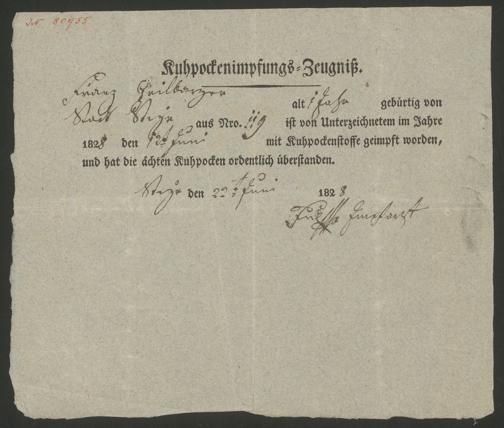 Kuhpockenimpfungs-Zeugniß.
Franz
alt 1 Jahr gebürtig von
Stadt Steyr aus Nro. 119 ist von Unterzeichnetem im Jahre
1828 den Juni mit Kuhpockenstoffe geimpft worden,
und hat die ächten Kuhpocken ordentlich überstanden.
Steyr den 22 Juni 1828
Impfarzt